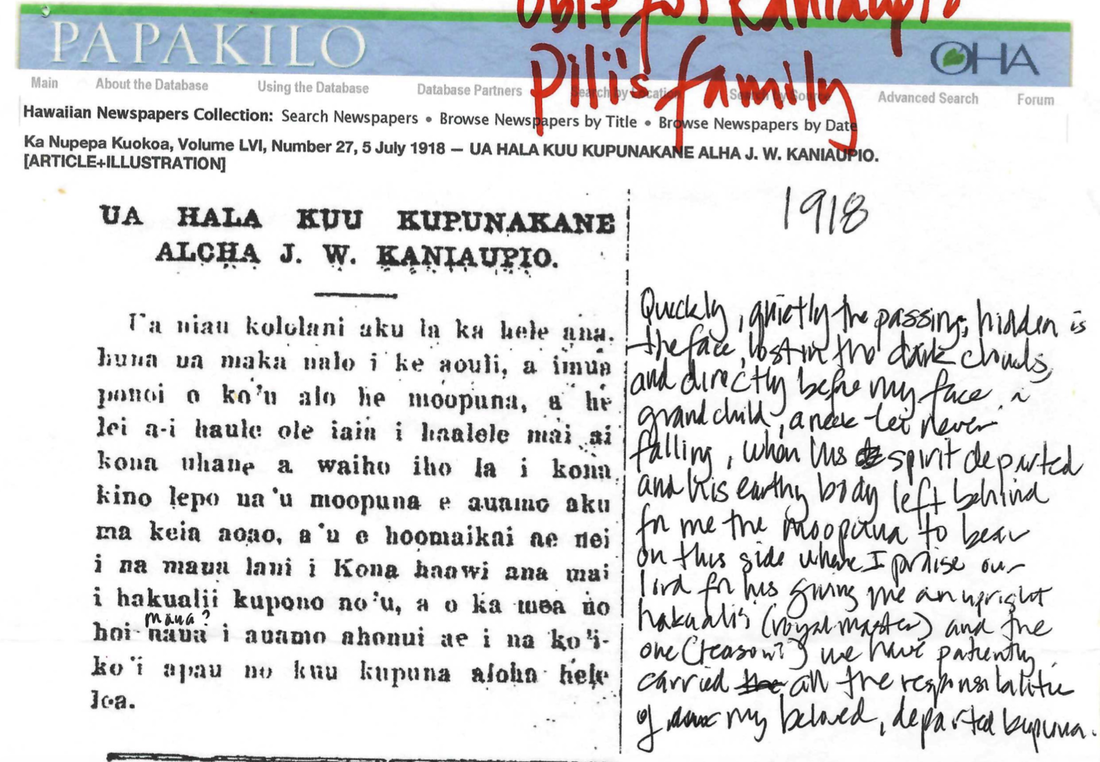 Obit for Kaniaupio
Pili's family
PAPAKILO
OHA
Main About the Database Using the Database Database Partners Search by Location Search by Source Advanced Search Forum
Hawaiian Newspapers Collection: Search Newspapers • Browse Newspapers by Title • Browse Newspapers by Date
Ka Nupepa Kuokoa, Volume LVI, Number 27, 5 July 1918 — UA HALA KUU KUPUNAKANE ALHA J. W. KANIAUPIO.
[ARTICLE+ILLUSTRATION]
UA HALA KUU KUPUNAKANE
ALCHA J. W. KANIAUPIO.
Ua niau kololani aku la ka hele ana.
huna ua maka nalo i ke aouli, a imua
ponoi o ko'u alo he moopuna, a he
lei a-i haule ole iaia i haalele mai ai
kona uhane a waiho iho la i kona
kino lepo na'u moopuna e auamo aku
ma keia aoao, a'u e hoomaikai ae nei
i na mana lani i Kona haawi ana mai
i hakualii kupono no'u, a o ka mea no
mana?
hoi naua i auamo ahonui ae i na ko'i-
ko'i apau no kuu kupuna aloha hele
loa.
1918
Quickly, quietly the passing, hidden is
the face, lost in the dark clouds,
and directly before my face a
grandchild, a neck lei never
falling, when his spirit departed
and his earthy body left behind
for me the moopuna to bear
on this side where I praise our
lord for his giving me an upright
hakualii (royal master) and the
one (reason?) we have patiently
carried all the responsibilities
of my beloved, departed kupuna.